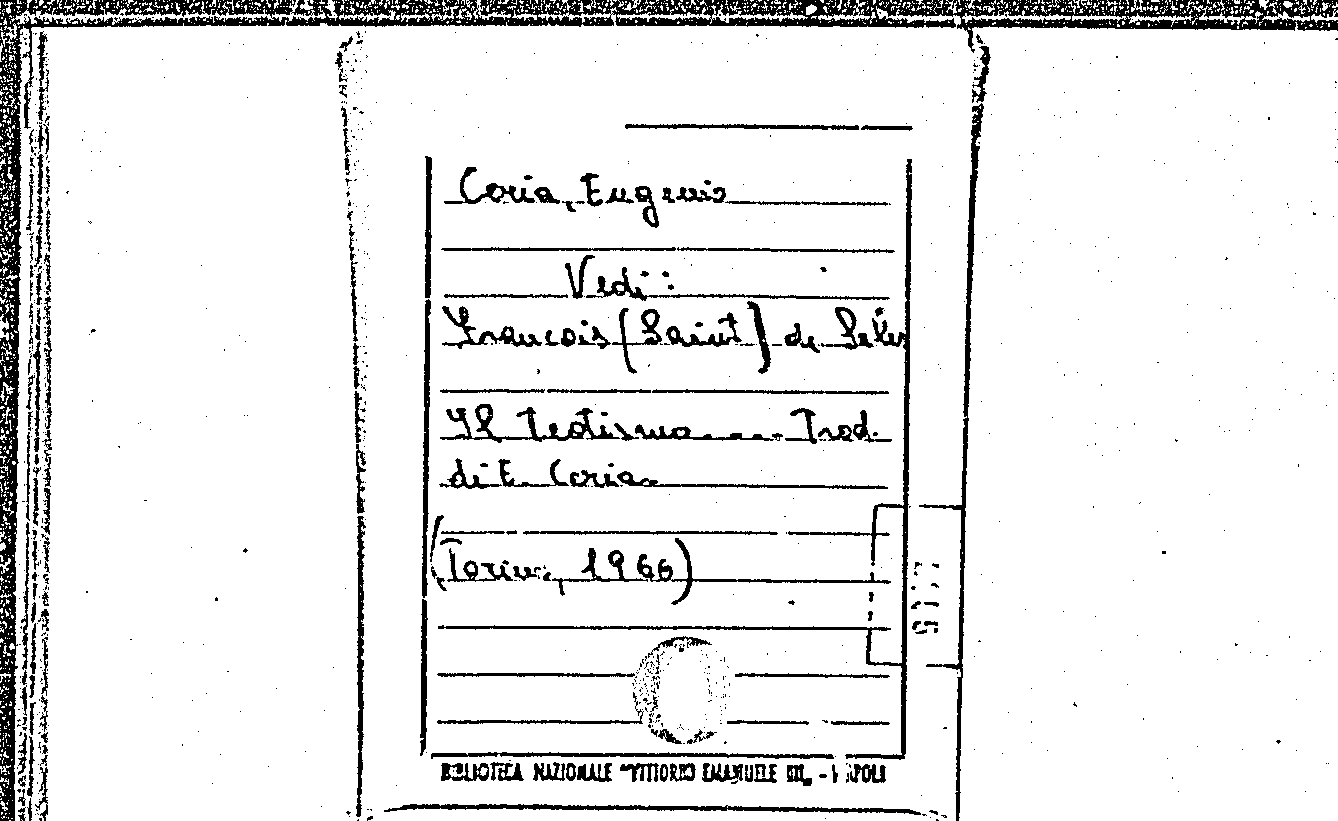 Coria, Eugenio
Vedi:
François [Saint] de Sales
Il Teotismo.... Trad.
di E. Coria
(Torino, 1966)
BIBLIOTECA NAZIONALE "VITTORIO EMANUELE III„ - NAPOLI